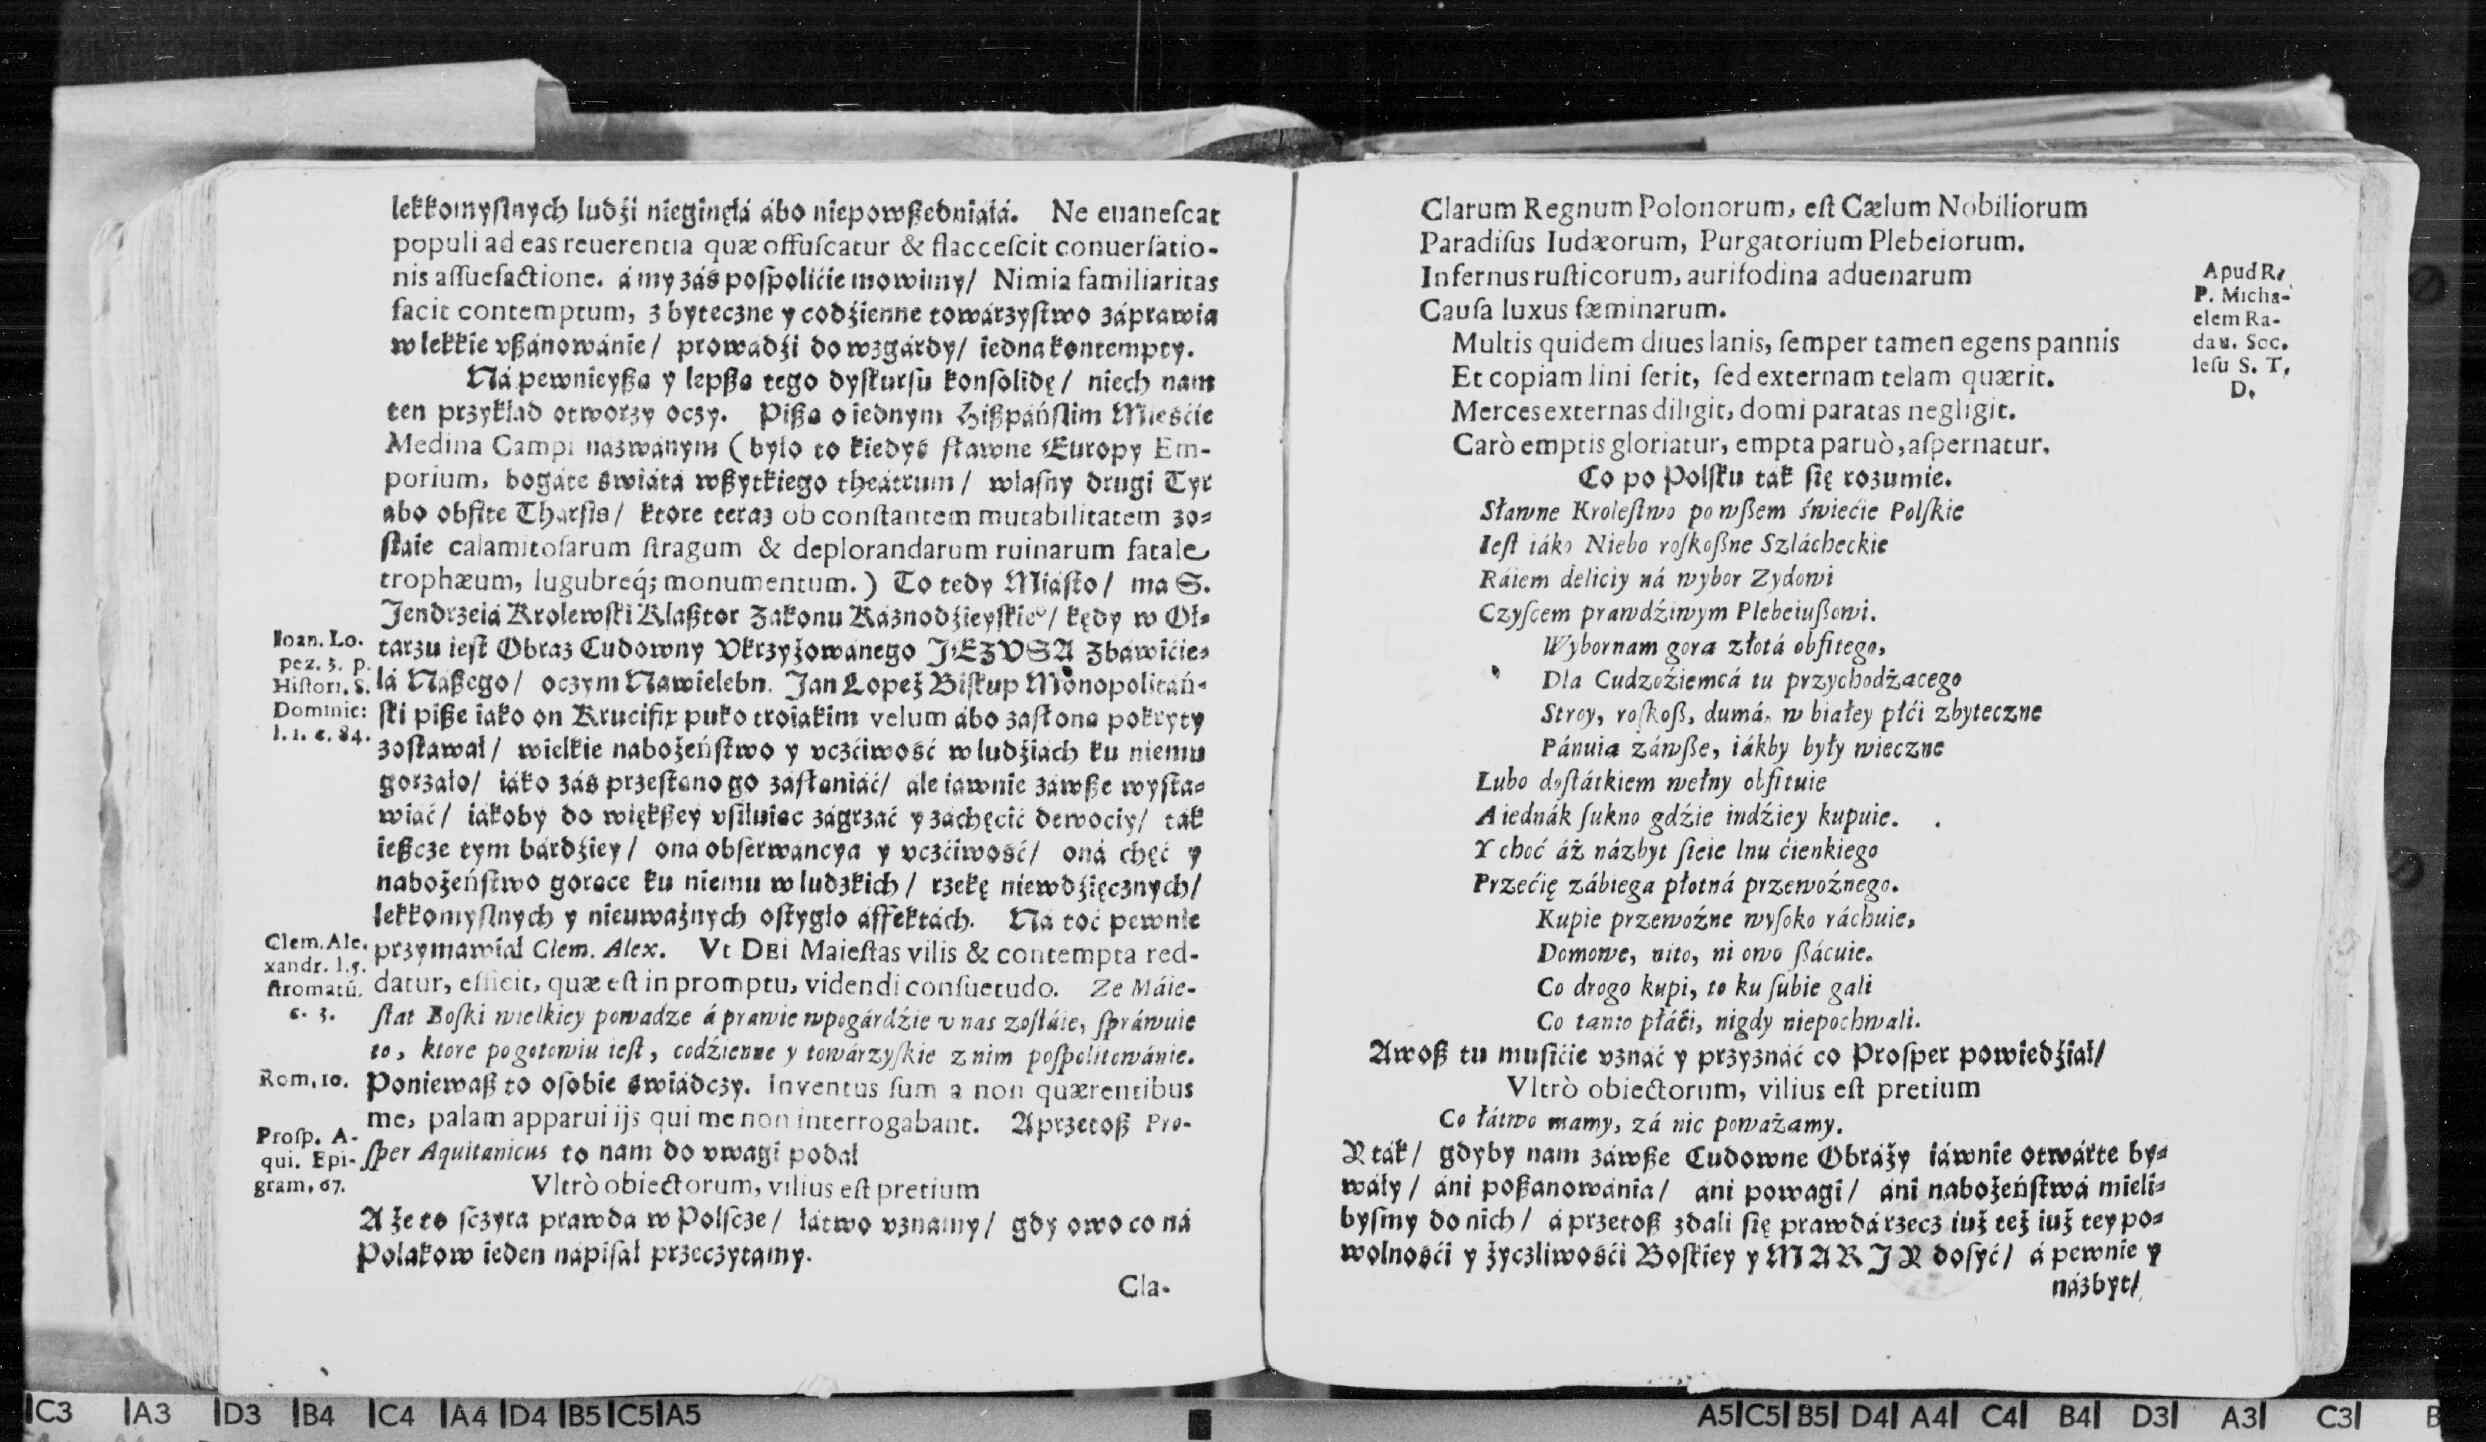 lekkomyſlnych ludźi nieginęłá ábo niepowßedniáłá. Ne euaneſcat
populi ad eas reuerentia quæ offuſcatur & flacceſcit conuerſatio-
nis aſſuefactione. á my záś poſpolićie mowimy/ Nimia familiaritas
facit contemptum, zbyteczne y codźienne towárzyſtwo zápráwia
w lekkie vßánowánie/ prowádźi do wzgárdy/ iedna kontempty.
Ná pewnieyßą y lepßą tego dyſkurſu konſolidę/ niech nam
ten przykład otworzy oczy. Pißą o iednym Hißpáńſkim Mieśćie
Medina Campi názwánym (było to kiedyś ſławne Europy Em-
porium, bogáte świátá wßytkiego theátrum/ włáſny drugi Tyr
ábo obfite Tharſis/ ktore teraz ob conſtantem mutabilitatem zo-
ſtáie calamitoſarum ſtragum & deplorandarum ruinarum fatale
trophæum, lugubreq́; monumentum.) To tedy Miáſto/ ma S.
Jendrzeiá Krolewſki Klaßtor Zakonu Káznodźieyſkieº/ kędy w Oł-
tarzu ieſt Obraz Cudowny Vkrzyżowánego JEZVSA Zbáwićie-
lá Náßego/ o czym Nawielebn. Jan Lopeż Biſkup Monopolitáń-
ſki piße iáko on Krucifix puko troiákim velum ábo zasłoną pokryty
zoſtawał/ wielkie nabożeńſtwo y vczćiwość w ludźiách ku niemu
gorzáło/ iáko záś przeſtano go zásłániáć/ ále iáwnie záwße wyſtá-
wiáć/ iákoby do więkßey vśiłuiąc zágrzać y záchęcić dewociy/ ták
ießcze tym bárdźiey/ oná obſerwáncya y vczćiwość/ oná chęć y
nabożeńſtwo gorące ku niemu w ludzkich/ rzekę niewdźięcznych/
lekkomyſlnych y nieuważnych oſtygło áffektách. Ná toć pewnie
przymawiał Clem. Alex. Vt DEI Maieſtas vilis & contempta red-
datur, efficit, quæ eſt in promptu, videndi conſuetudo. Ze Máie-
ſtat Boſki wielkiey powadze á prawie wpogárdźie v nas zoſtáie, ſpráwuie
to, ktore pogotowiu ieſt, codźienne y towárzyſkie z nim poſpolitowánie.
Ponieważ to oſobie świádczy. Inventus ſum a non quærentibus
me, palam apparui ijs qui me non interrogabant. A przetoß Pro-
ſper Aquitanicus to nam do vwagi podał
Vltrò obiectorum, vilius eſt pretium
A że to ſczyra prawdá w Polſcze/ łátwo vznamy/ gdy owo co ná
Polakow ieden nápiſał przeczytamy.
Cla-
Ioan. Lo-
pez. 3. p.
Hiſtori. S.
Dominic:
l. 1. c. 84.
Clem. Ale-
xandr. l. 5.
ſtromatū.
c. 3.
Rom, 10.
Proſp. A-
qui. Epi-
gram, 67.
Clarum Regnum Polonorum, eſt Cælum Nobiliorum
Paradiſus Iudæorum, Purgatorium Plebeiorum.
Infernus ruſticorum, aurifodina aduenarum
Cauſa luxus fæminarum.
Multis quidem diues lanis, ſemper tamen egens pannis
Et copiam lini ſerit, ſed externam telam quærit.
Merces externas diligit, domi paratas negligit.
Carò emptis gloriatur, empta paruò, aſpernatur.
Co po Polſku ták ſię rozumie.
Sławne Kroleſtwo po wßem świećie Polſkie
Ieſt iáko Niebo roſkoßne Szlácheckie
Ráiem deliciy ná wybor Zydowi
Czyſcem prawdźiwym Plebeiußowi.
Wybornam gora złotá obfitego,
Dla Cudzoźiemcá tu przychodźącego
Stroy, roſkoß, dumá, w białey płći zbyteczne
Pánuią záwße, iákby były wieczne
Lubo doſtátkiem wełny obfituie
A iednák ſukno gdźie indźiey kupuie.
Y choć áż názbyt ſieie lnu ćienkiego
Przećię zábiega płotná przewoźnego.
Kupie przewoźne wyſoko ráchuie,
Domowe, nito, ni owo ßácuie.
Co drogo kupi, to ku ſobie gali
Co tanio płáći, nigdy niepochwali.
Awoß tu muśićie vznáć y przyznáć co Proſper powiedźiał/
Vltrò obiectorum, vilius eſt pretium
Co łátwo mamy, zá nic poważamy.
Y ták/ gdyby nam záwße Cudowne Obráży iáwnie otwárte by-
wáły/ áni poßanowánia/ áni powagi/ áni nabożeńſtwá mieli-
byſmy do nich/ á przetoß zdáli ſię prawdá rzecz iuż też iuż tey po-
wolnośći y życzliwośći Boſkiey y MARJY doſyć/ á pewnie y
názbyt/
Apud R.
P. Micha-
elem Ra-
dau. Soc.
Ieſu S. T.
D.
C3 A3 D3 B4 C4 A4 D4 B5 C5 A5
A5 C5 B5 D4 A4 C4 B4 D3 A3 C3 B